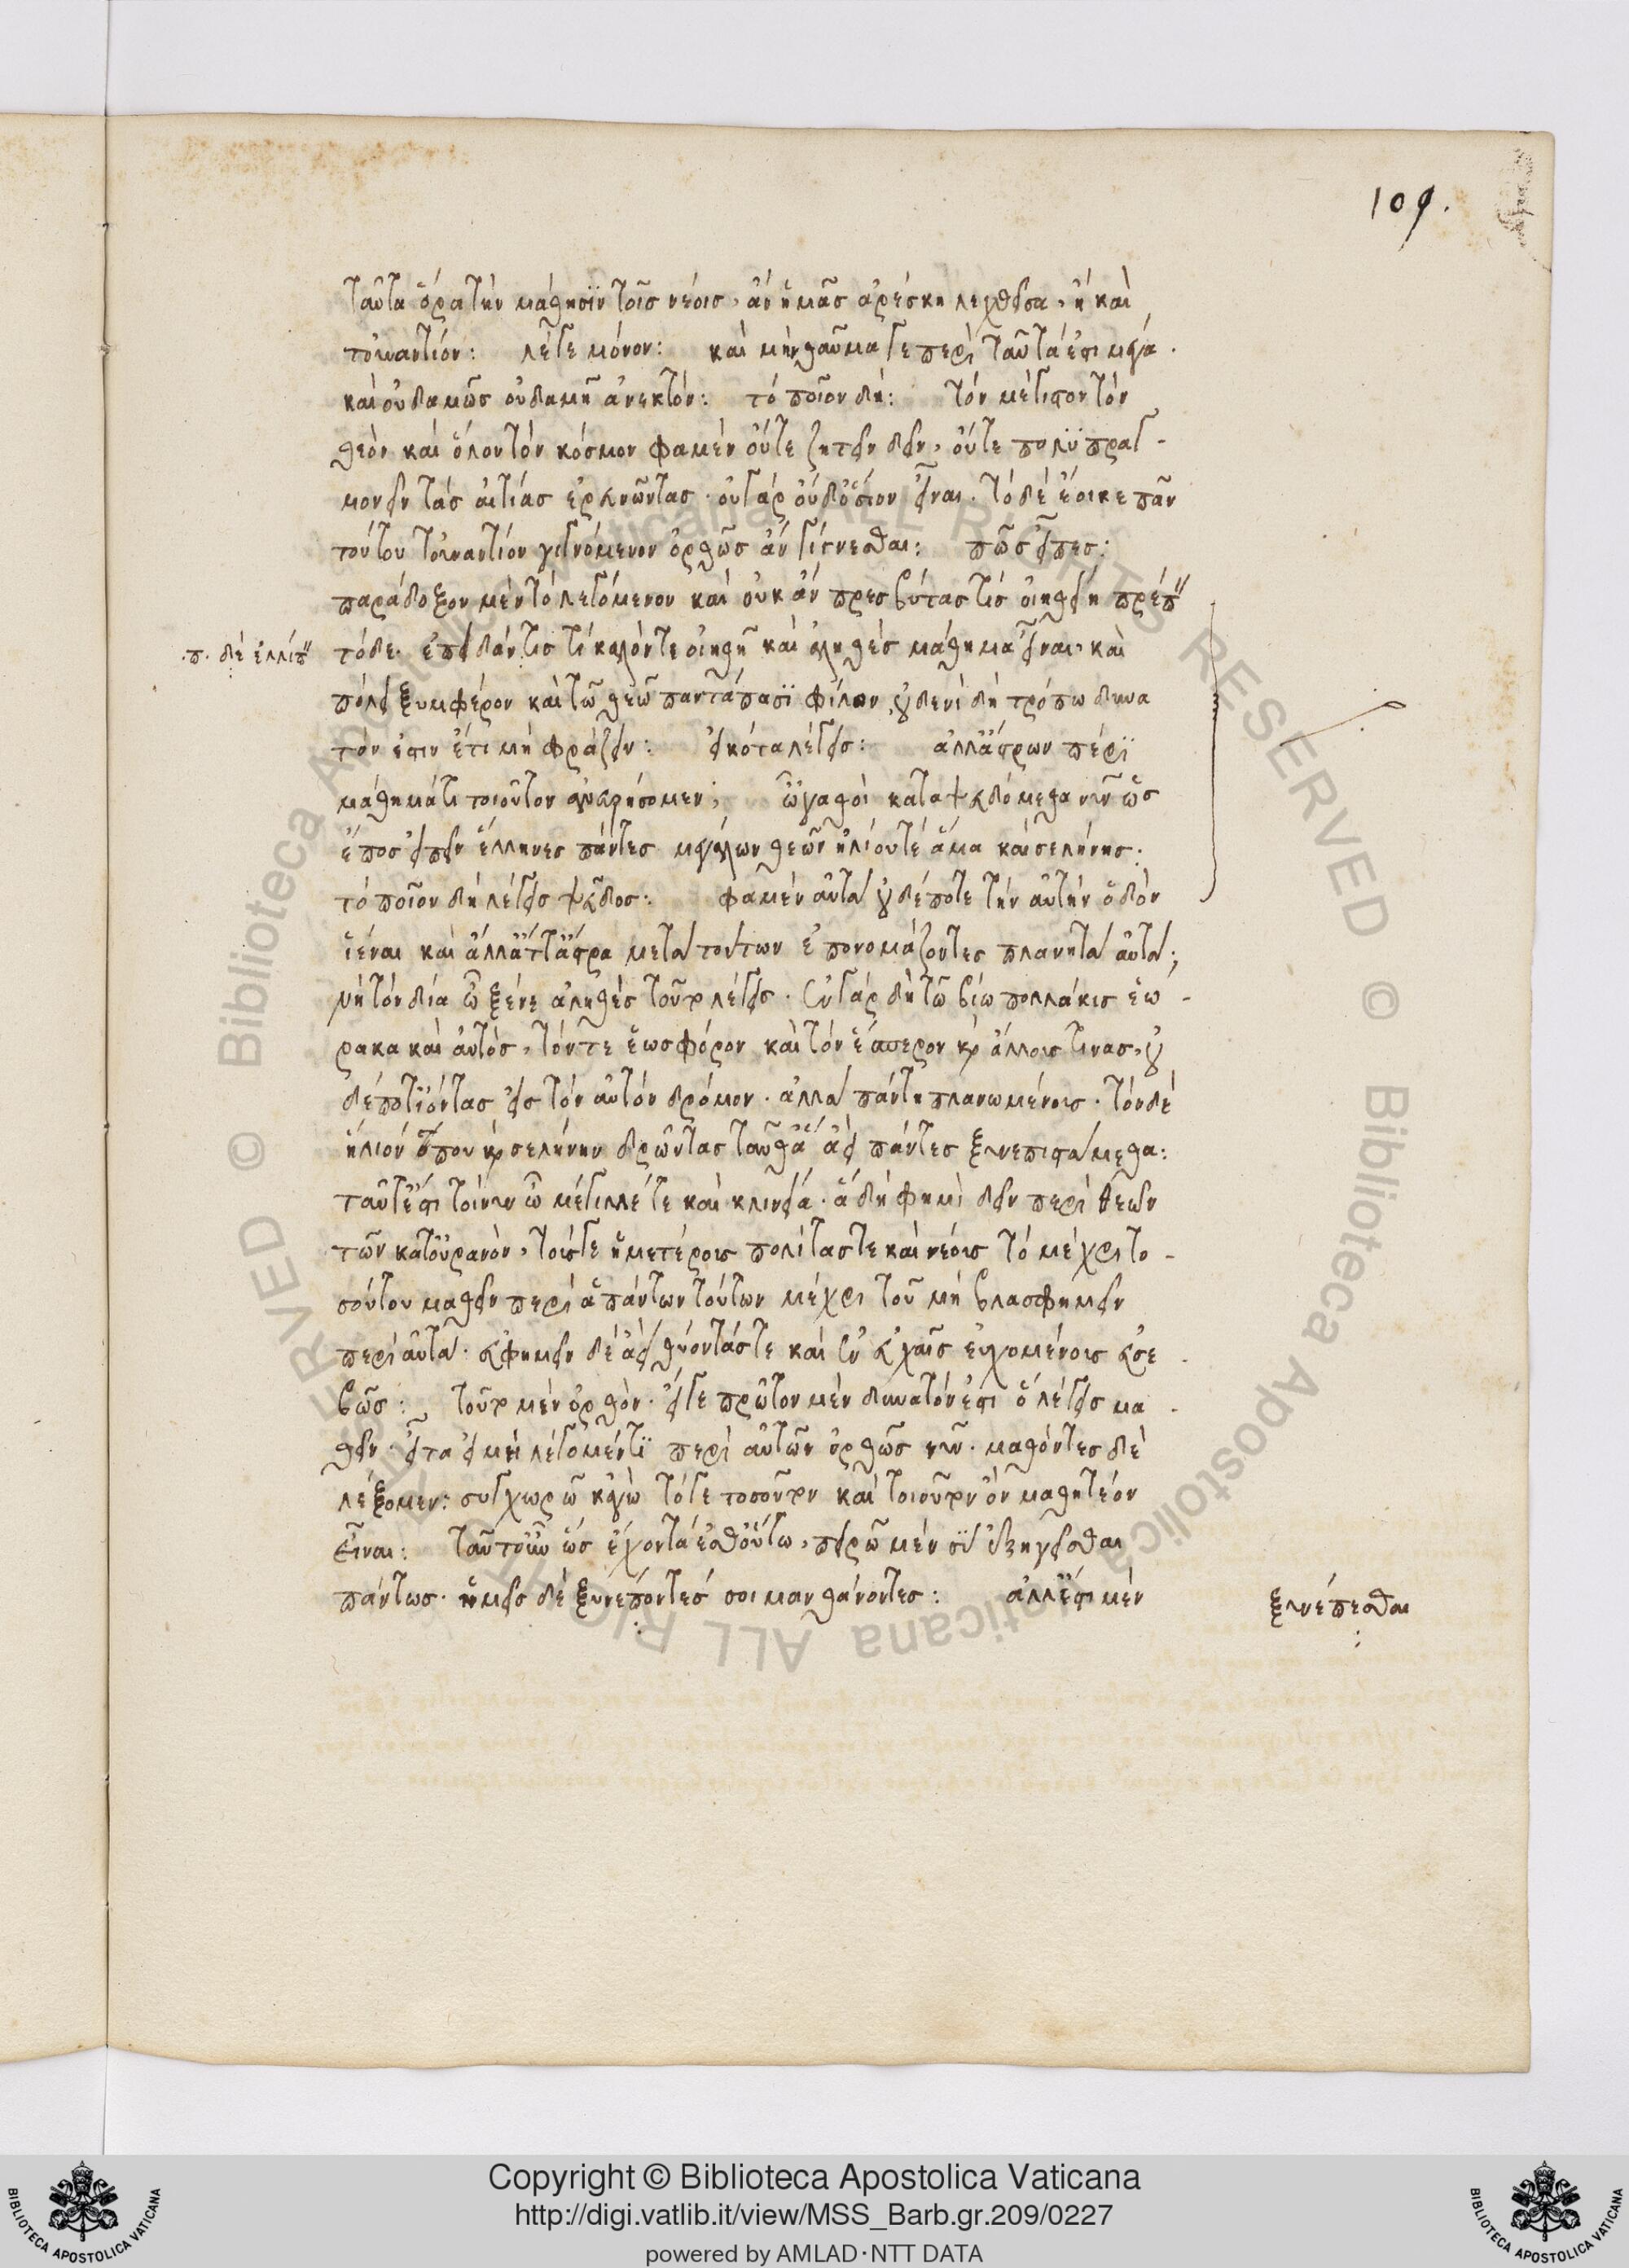 109.
ταῦτα ὅρα τὴν μάθησιν τοῖς νέοις, ἂν ἡμᾶς ἀρέσκῃ λεχθεῖσα, ἢ καὶ
τοὐναντίον: λέγε μόνον: καὶ μὴν θαῦμά γε περὶ ταῦτά ἐστι μέγα.
καὶ οὐδαμῶς οὐδαμῇ ἀνεκτόν: τὸ ποῖον δή: τὸν μέγιστον τὸν
θεὸν καὶ ὅλον τὸν κόσμον φαμὲν οὔτε ζητεῖν δεῖν, οὔτε πολυπραγ-
μονεῖν τὰς αἰτίας ἐρευνῶντας. οὐ γὰρ οὐδ' ὅσιον εἶναι. τὸ δὲ ἔοικε πᾶν
τούτου τοὐναντίον γιγνόμενον ὀρθῶς ἂν γίγνεσθαι: πῶς εἶπες:
παράδοξον μὲν τὸ λεγόμενον καὶ οὐκ ἂν πρεσβύταις τις οἰηθείη πρέπ
.π. δὲ ἐλλίπ
τόδε. ἐπειδάν τις τί καλόν τε οἰηθῇ καὶ ἀληθὲς μάθημα εἶναι, καὶ
πόλει ξυμφέρον καὶ τῷ θεῷ παντάπασι φίλον, οὐδενὶ δὴ τρόπῳ δυνα
τόν ἐστιν ἔτι μὴ φράζειν: εἰκότα λέγεις: ἀλλ' ἄστρων πέρι
μάθημά τι τοιοῦτον ἀνευρήσομεν; ὦ 'γαθοὶ καταψευδόμεθα νῦν ὡς
ἔπος εἰπεῖν ἕλληνες πάντες μεγάλων θεῶν ἡλίου τε ἅμα καὶ σελήνης:
τὸ ποῖον δὴ λέγεις ψεῦδος: φαμὲν αὐτὰ οὐδέποτε τὴν αὐτὴν ὁδὸν
ἰέναι καὶ ἄλλ' ἄττ' ἄστρα μετὰ τούτων ἐπονομάζοντες πλανητὰ αὐτά;
νὴ τὸν δία ὦ ξένε ἀληθὲς τοῦτο λέγεις. ἐν γὰρ δὴ τῷ βίῳ πολλάκις ἑώ-
ρακα καὶ αὐτός, τόν τε ἑωσφόρον καὶ τὸν ἕσπερον καὶ ἄλλους τινάς, οὐ
δέποτ' ἰόντας εἰς τὸν αὐτὸν δρόμον. ἀλλὰ πάντῃ πλανωμένους. τὸν δὲ
ἥλιόν που καὶ σελήνην δρῶντας ταῦθ' ἃ ἀεὶ πάντες ξυνεπιστάμεθα:
ταῦτ' ἔστι τοίνυν ὦ μέγιλλέ τε καὶ κλεινία. ἃ δή φημι δεῖν περὶ θεῶν
τῶν κατ' οὐρανόν, τούς γε ἡμετέρους πολίτας τε καὶ νέους τὸ μέχρι το-
σούτου μαθεῖν περὶ ἁπάντων τούτων μέχρι τοῦ μὴ βλασφημεῖν
περὶ αὐτά. εὐφημεῖν δὲ ἀεὶ θύοντάς τε καὶ ἐν εὐχαῖς εὐχομένους εὐσε-
βῶς: τοῦτο μὲν ὀρθόν. εἴ γε πρῶτον μὲν δυνατόν ἐστι ὃ λέγεις μα-
θεῖν. εἶτα εἰ μὴ λέγομέν τι περὶ αὐτῶν ὀρθῶς νῦν. μαθόντες δὲ
λέξομεν: συγχωρῶ κἀγὼ τό γε τοσοῦτον καὶ τοιοῦτον ὂν μαθητέον
εἶναι: ταῦτ' οὖν ὡς ἔχοντά ἐσθ' οὕτω, πειρῶ μὲν σὺ ἐξηγεῖσθαι
πάντως. ἡμεῖς δὲ ξυνεπόντες σοι μανθάνοντες: ἀλλ' ἔστι μὲν
ξυνέπεσθαι
Copyright © Biblioteca Apostolica Vaticana
http://digi.vatlib.it/view/MSS_Barb.gr.209/0227
powered by AMLAD·NTT DATA